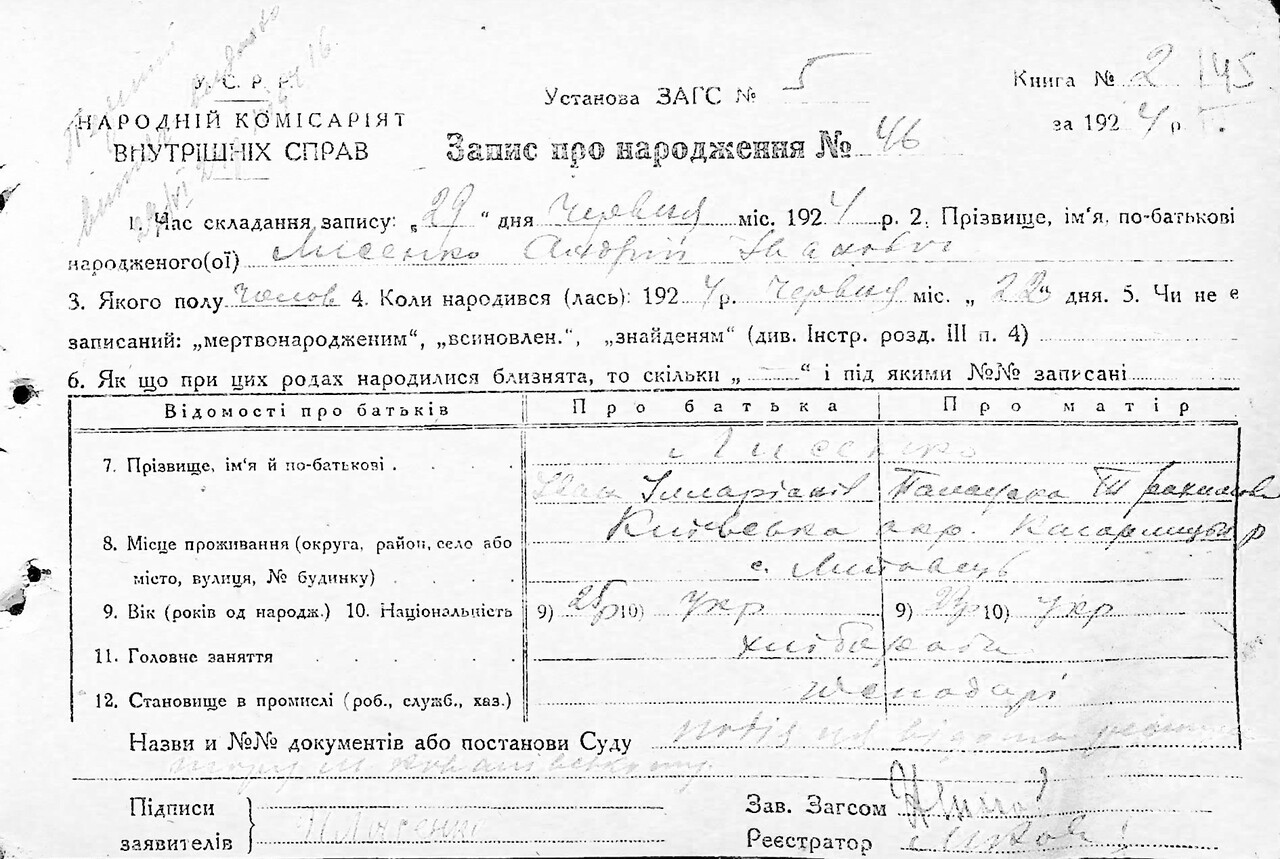 У. С. Р. Р.
НАРОДНІЙ КОМІСАРІЯТ
ВНУТРІШНІХ СПРАВ
Установа ЗАГС № 5
Книга № 2 145
за 1924 р.
Запис про народження № 46
1. Час складання запису: „29" дня Червня міс. 1924 р. 2. Прізвище, ім'я, по-батькові
народженого(ої) Лисенко Андрій Іванович
3. Якого полу чолов 4. Коли народився (лась): 1924 р. Червня міс. „22" дня. 5. Чи не є
записаний: „мертвонародженим", „всиновлен.", „знайденям" (див. Інстр. розд. III п. 4)
6. Як що при цих родах народилися близнята, то скільки „ — " і під якими №№ записані
Відомості про батьків Про батька Про матір
7. Прізвище, ім'я й по-батькові . Лисенко
Іван Ілларіонів
8. Місце проживання (округа, район, село або Київська окр. Кагарлицьк р
місто, вулиця, № будинку) с. Липовець
9. Вік (років од народж.) 10. Національність 9) 25р 10) укр 9) 23р 10) укр
11. Головне заняття хлібороби
12. Становище в промислі (роб., служб., хаз.) господарі
Назви и №№ документів або постанови Суду подія ця відома
Підписи
заявителів Лисенко
Зав. Загсом
Реєстратор